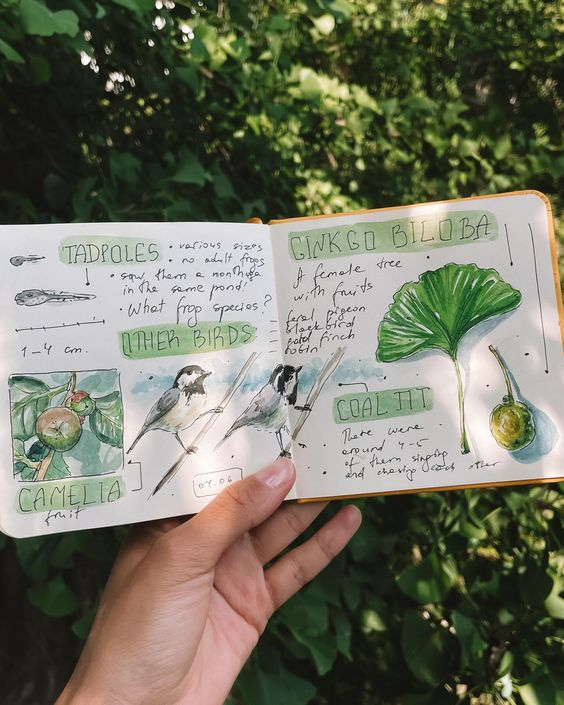 TADPOLES
• various sizes
• no adult frogs
• saw them a month ago
in the same pond!
• What frog species?
1-4 cm.
OTHER BIRDS
CAMELIA
fruit
04.06
GINKGO BILOBA
A female tree
with fruits
feral pigeon
blackbird
gold finch
robin
COAL TIT
There were
around 4-5
of them singing
and chasing each other